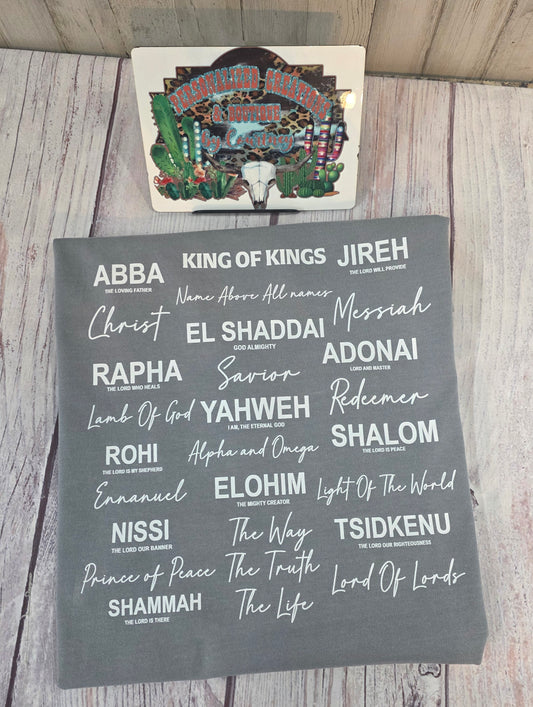 PERSONALIZED CREATIONS
& BOUTIQUE
by Courtney
ABBA
THE LOVING FATHER
KING OF KINGS
JIREH
THE LORD WILL PROVIDE
Name Above All names
Christ
EL SHADDAI
GOD ALMIGHTY
Messiah
RAPHA
THE LORD WHO HEALS
Savior
ADONAI
LORD AND MASTER
Lamb Of God
YAHWEH
I AM, THE ETERNAL GOD
Redeemer
ROHI
THE LORD IS MY SHEPHERD
Alpha and Omega
SHALOM
THE LORD IS PEACE
Emnanuel
ELOHIM
THE MIGHTY CREATOR
Light Of The World
NISSI
THE LORD OUR BANNER
The Way
TSIDKENU
THE LORD OUR RIGHTEOUSNESS
Prince of Peace
The Truth
Lord Of Lords
SHAMMAH
THE LORD IS THERE
The Life